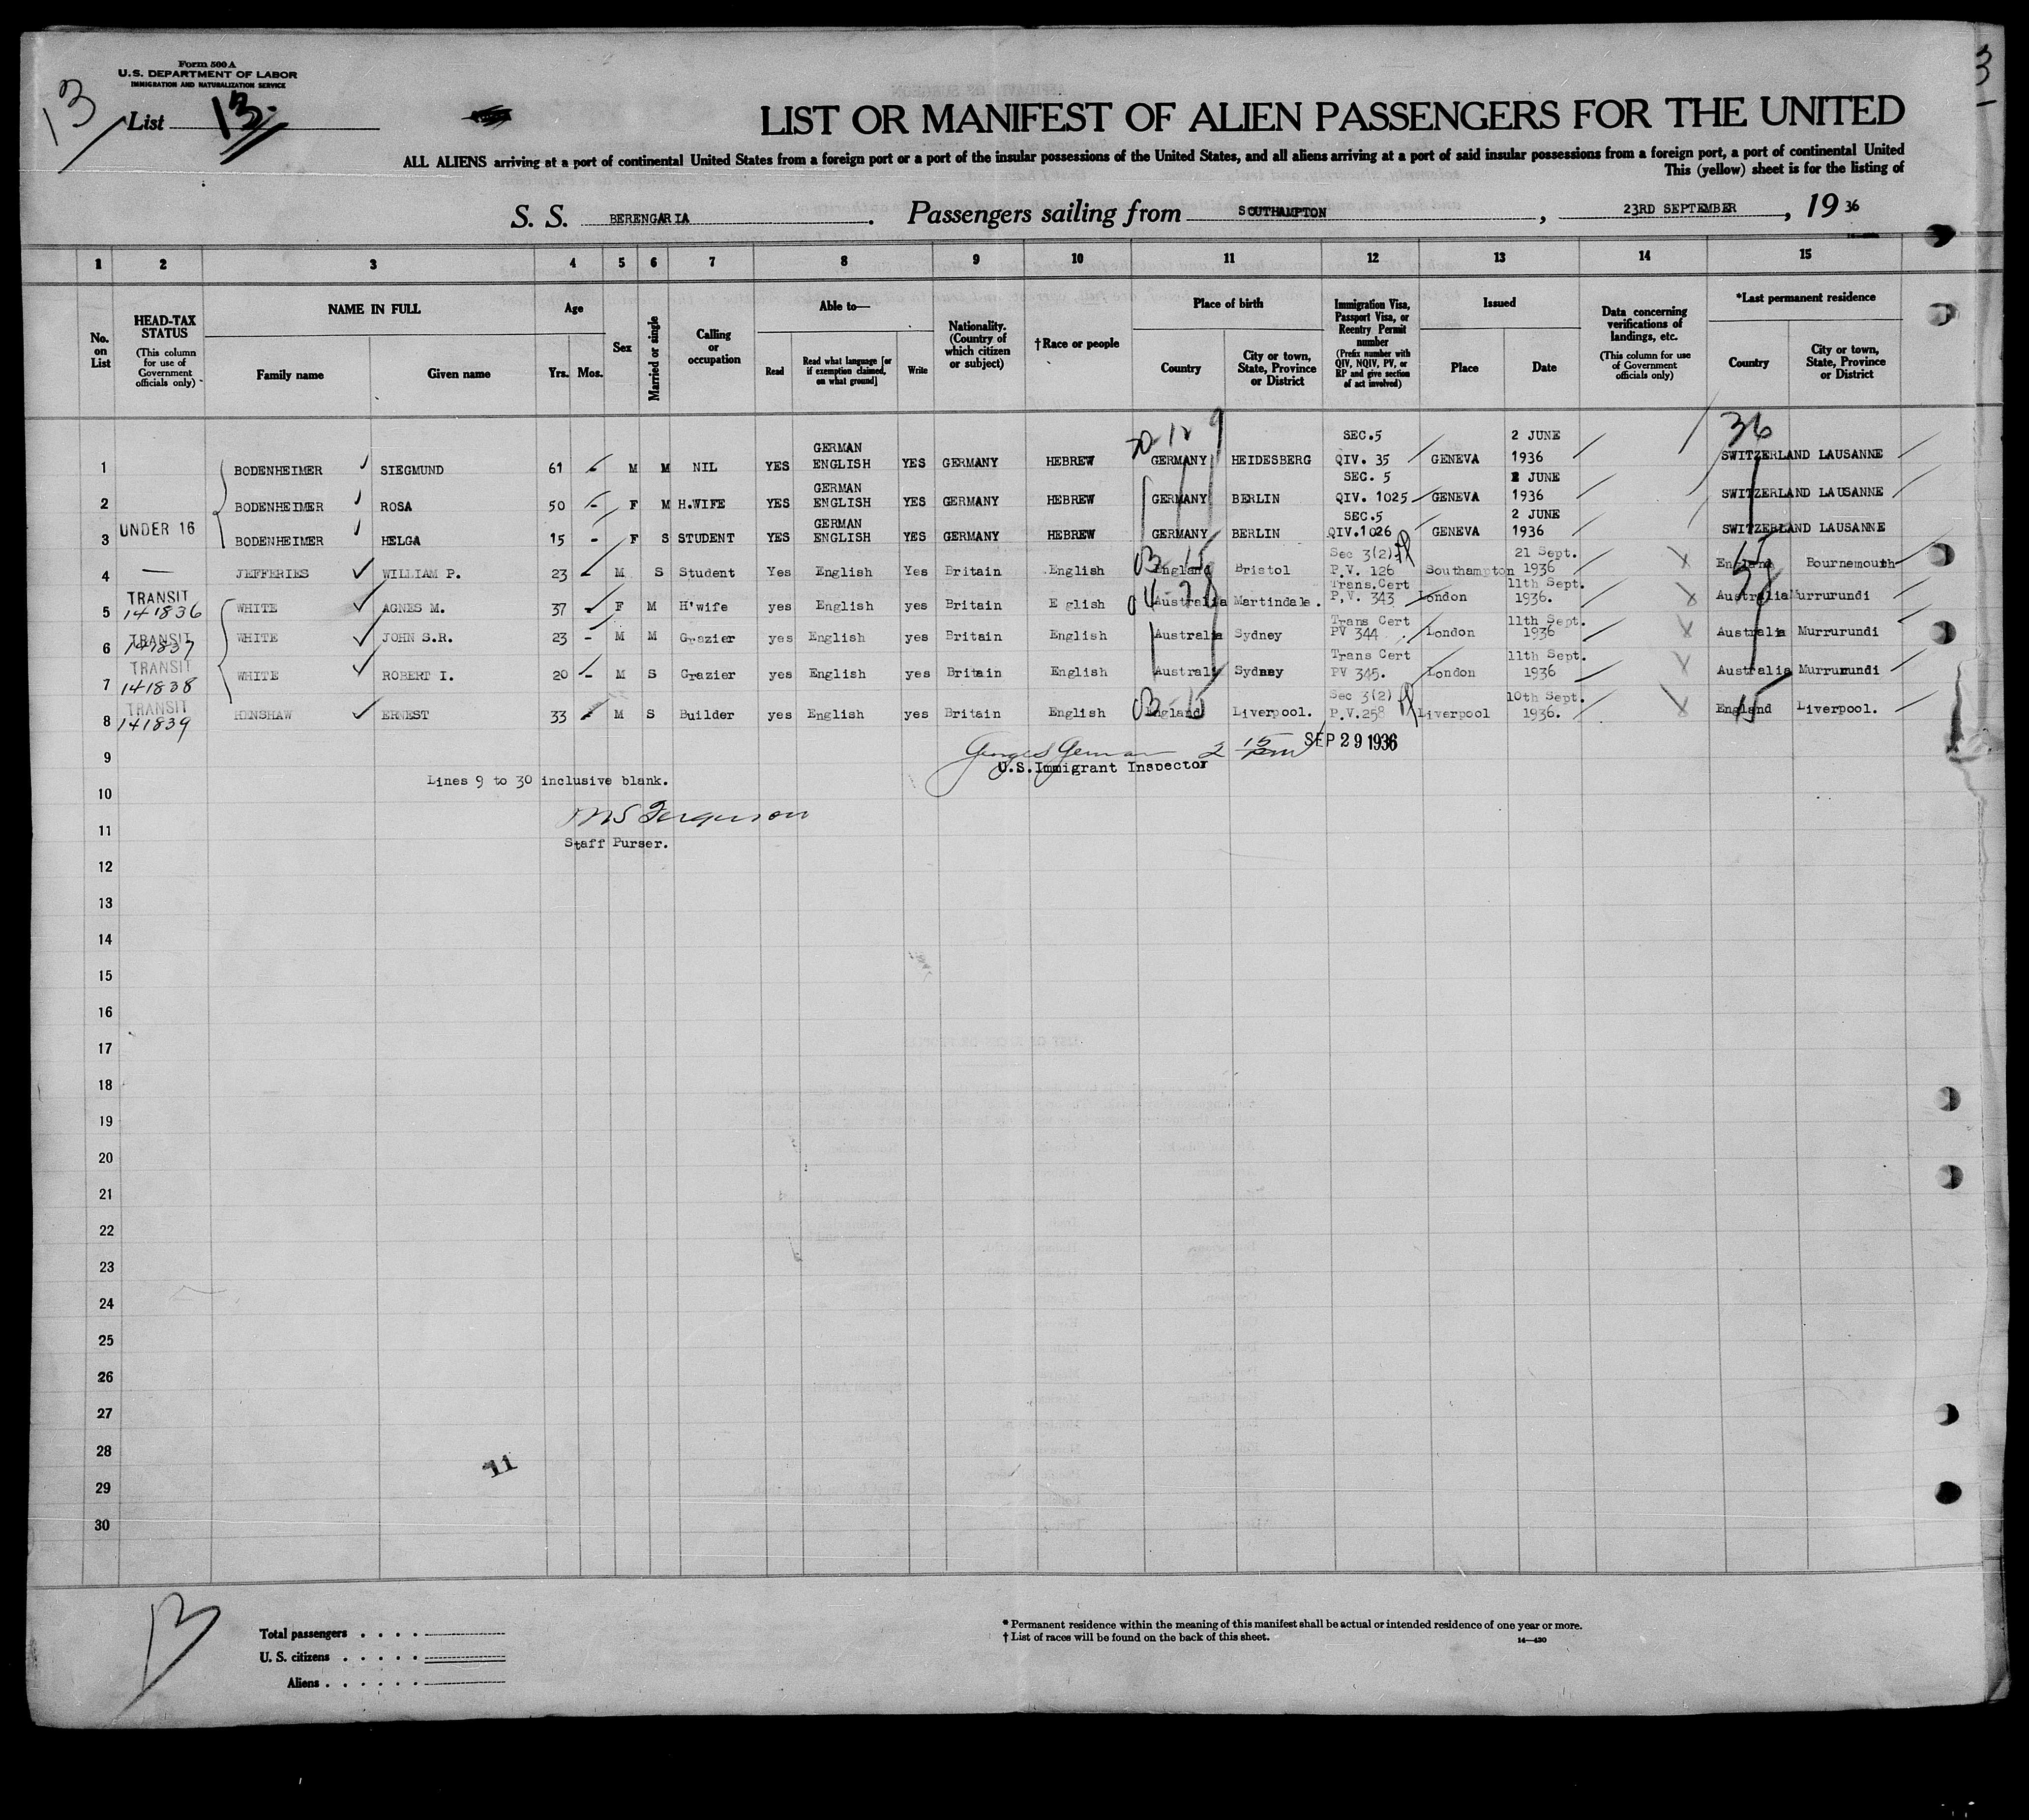 Form 500 A
U.S. DEPARTMENT OF LABOR
IMMIGRATION AND NATURALIZATION SERVICE
13
List 13
3
LIST OR MANIFEST OF ALIEN PASSENGERS FOR THE UNITED
ALL ALIENS arriving at a port of continental United States from a foreign port or a port of the insular possessions of the United States, and all aliens arriving at a port of said insular possessions from a foreign port, a port of continental United
This (yellow) sheet is for the listing of
S. S. BERENGARIA. Passengers sailing from SOUTHAMPTON, 23RD SEPTEMBER, 19 36
1 2 3 4 5 6 7 8 9 10 11 12 13 14 15
No. on List
HEAD-TAX STATUS (This column for use of Government officials only)
NAME IN FULL
Family name Given name
Age
Yrs. Mos.
Sex
Married or single
Calling or occupation
Able to—
Read
Read what language [or if exemption claimed, on what ground]
Write
Nationality. (Country of which citizen or subject)
†Race or people
Place of birth
Country
City or town, State, Province or District
Immigration Visa, Passport Visa, or Reentry Permit number (Prefix number with QIV, NQIV, PV, or RP and give section of act involved)
Issued
Place Date
Data concerning verifications of landings, etc. (This column for use of Government officials only)
*Last permanent residence
Country
City or town, State, Province or District
36
GERMAN SEC.5 2 JUNE
1 BODENHEIMER SIEGMUND 61 - M M NIL YES ENGLISH YES GERMANY HEBREW GERMANY HEIDESBERG QIV. 35 GENEVA 1936 SWITZERLAND LAUSANNE
GERMAN SEC. 5 2 JUNE
2 BODENHEIMER ROSA 50 - F M H.WIFE YES ENGLISH YES GERMANY HEBREW GERMANY BERLIN QIV. 1025 GENEVA 1936 SWITZERLAND LAUSANNE
GERMAN SEC.5 2 JUNE
3 UNDER 16 BODENHEIMER HELGA 15 - F S STUDENT YES ENGLISH YES GERMANY HEBREW GERMANY BERLIN QIV.1026 GENEVA 1936 SWITZERLAND LAUSANNE
Sec 3(2) 21 Sept.
4 — JEFFERIES WILLIAM P. 23 - M S Student Yes English Yes Britain English England Bristol P.V. 126 Southampton 1936 England Bournemouth
TRANSIT Trans.Cert 11th Sept.
5 141836 WHITE AGNES M. 37 - F M H'wife yes English yes Britain E glish Australia Martindale. P.V. 343 London 1936. Australia Murrurundi
TRANSIT Trans Cert 11th Sept.
6 141837 WHITE JOHN S.R. 23 - M M Grazier yes English yes Britain English Australia Sydney PV 344 London 1936 Australia Murrurundi
TRANSIT Trans Cert 11th Sept.
7 141838 WHITE ROBERT I. 20 - M S Grazier yes English yes Britain English Australi Sydney PV 345. London 1936 Australia Murrurundi
TRANSIT Sec 3(2) 10th Sept.
8 141839 HENSHAW ERNEST 33 - M S Builder yes English yes Britain English England Liverpool. P.V.258 Liverpool 1936. England Liverpool.
9 2 15 pm SEP 29 1936
U.S.Immigrant Inspector
Lines 9 to 30 inclusive blank.
10
Ferguson
11
Staff Purser.
12
13
14
15
16
17
18
19
20
21
22
23
24
25
26
27
28
11
29
30
13
Total passengers . . . .
U. S. citizens . . . . .
Aliens . . . . . .
* Permanent residence within the meaning of this manifest shall be actual or intended residence of one year or more.
† List of races will be found on the back of this sheet.
14—430